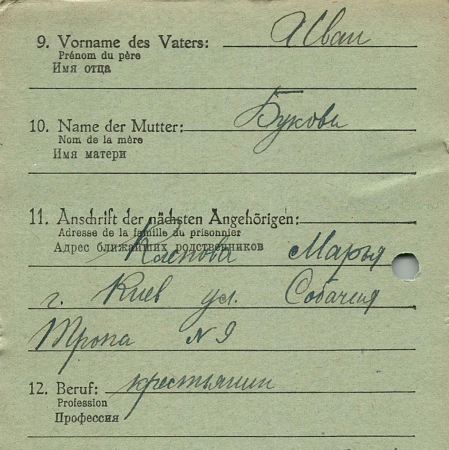 9. Vorname des Vaters: Иван
Prénom du père
Имя отца
10. Name der Mutter: Букови
Nom de la mère
Имя матери
11. Anschrift der nächsten Angehörigen:
Adresse de la famille du prisonnier
Адрес ближайших родственников
Марья
г. Киев ул. Собачья
Тропа N 9
12. Beruf: крестьянин
Profession
Профессия